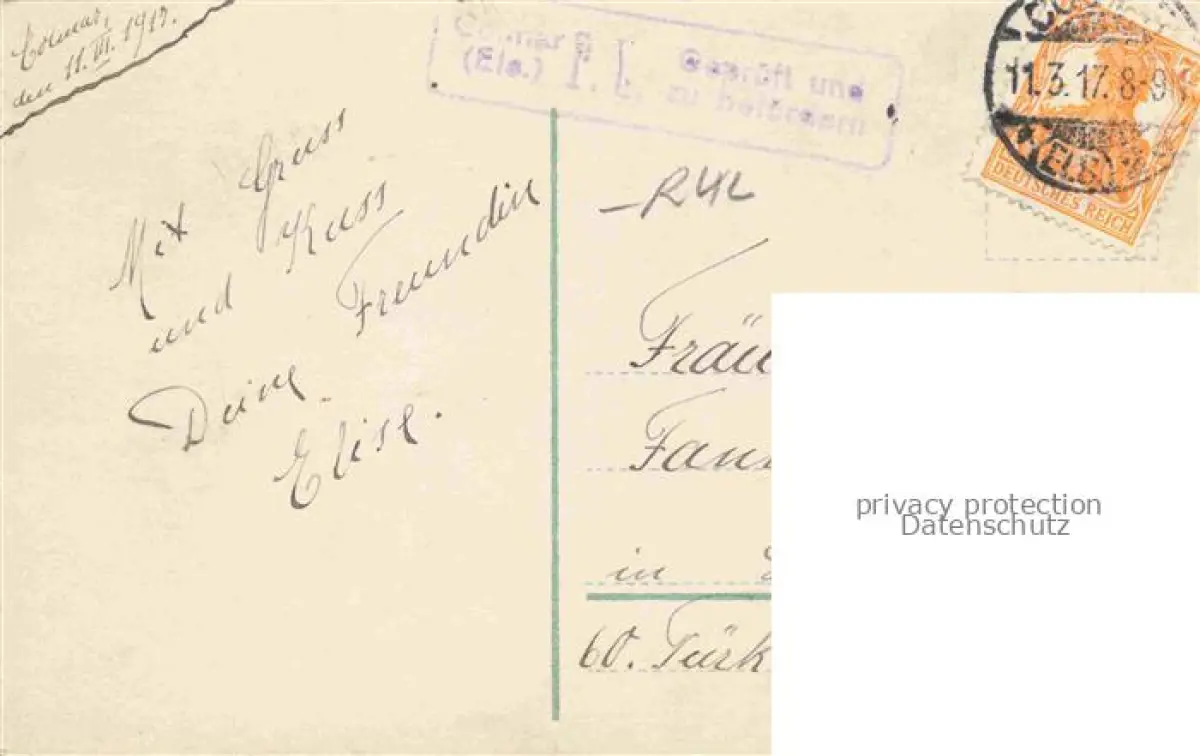 Colmar,
den 11. III. 1917.
Mit Gruss
und Kuss
Deine Freundin
Elise.
Colmar
(Els.)
Geprüft und
zu befördern
CO
11.3.17. 8-9
(ELS.)
DEUTSCHES REICH
Fräu
Fan
in
60. Türk
privacy protection
Datenschutz